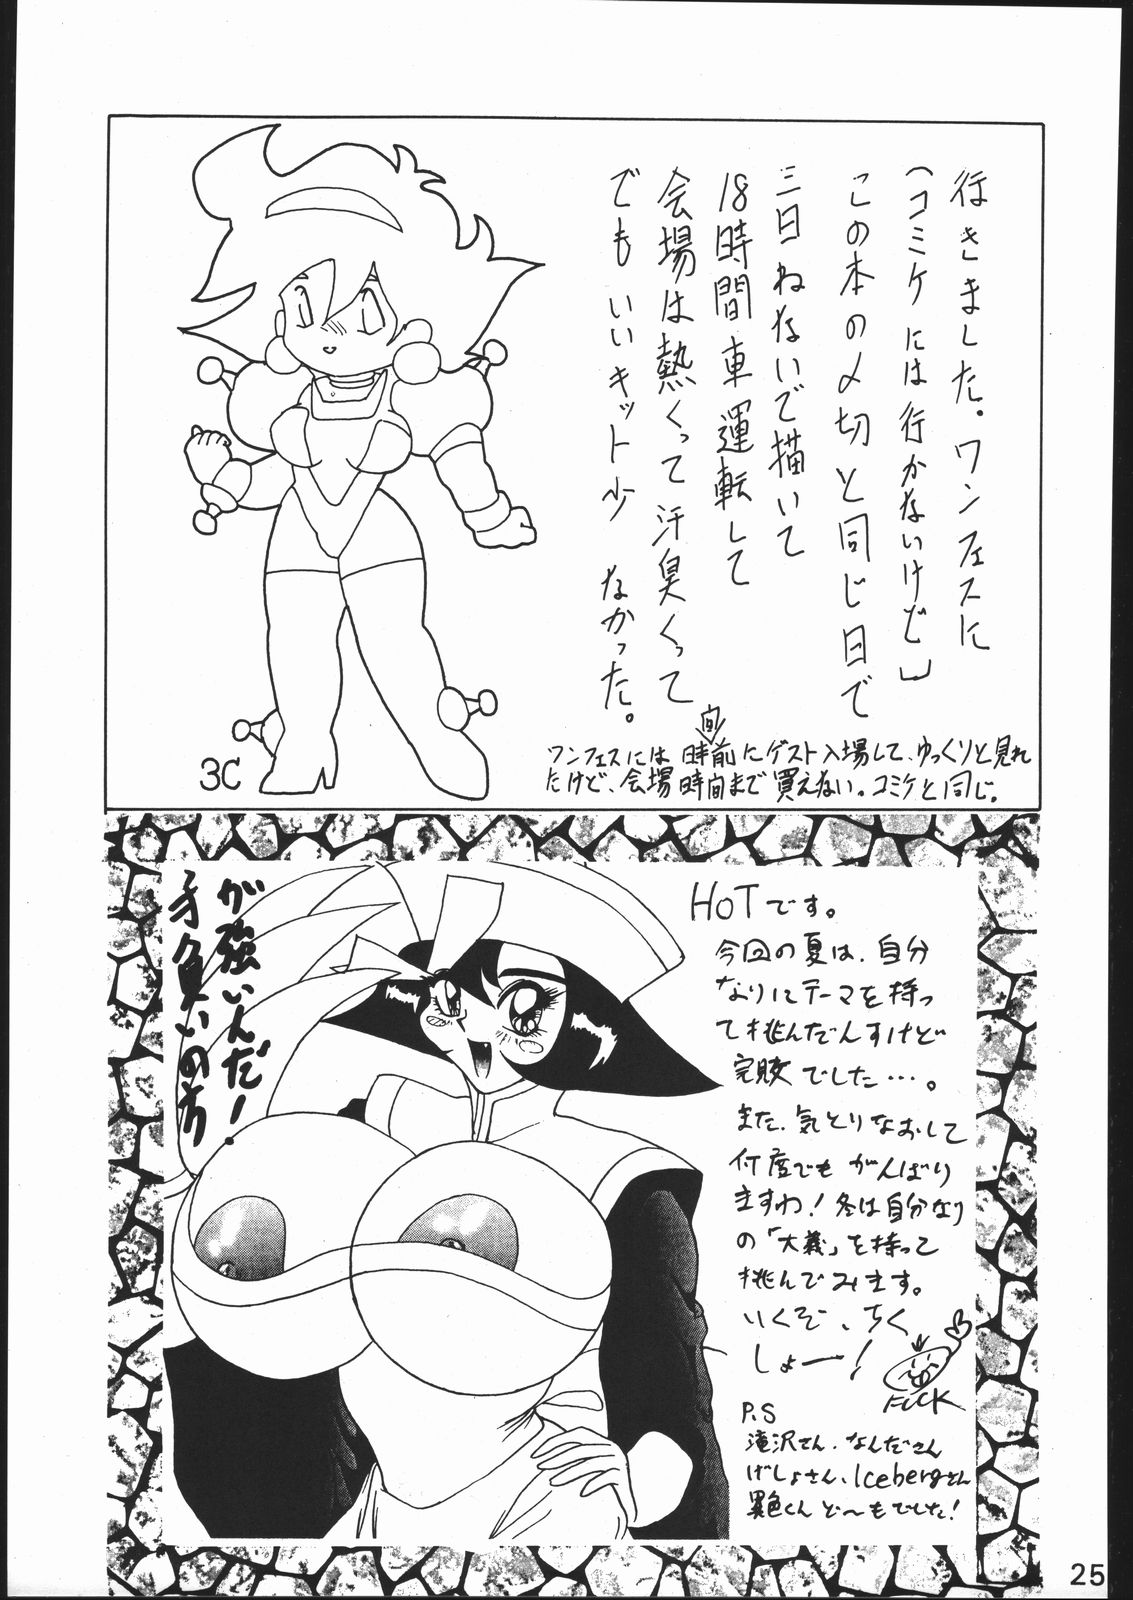 行きました。ワンフェスに
(コミケには行かないけど)
この本の〆切と同じ日で
三日ねないで描いて
18時間車運転して
会場は熱くって汗臭くって
でもいいキット少なかった。
ワンフェスには時間前にゲスト入場して、ゆっくりと見れ
たけど、会場時間まで買えない。コミケと同じ。
3C
HOTです。
今回の夏は、自分
なりにテーマを持っ
て挑んだんすけど
完敗でした…。
また、気とりなおして
何度でもがんばり
ますわ!冬は自分なり
の「大義」を持って
挑んでみます。
いくぞ、ちく
しょー!
FUCK
P.S
滝沢さん、なんださん
げしょさん、Icebergさん
異色くんど〜もでした!
手負いの方
が強いんだ!
25